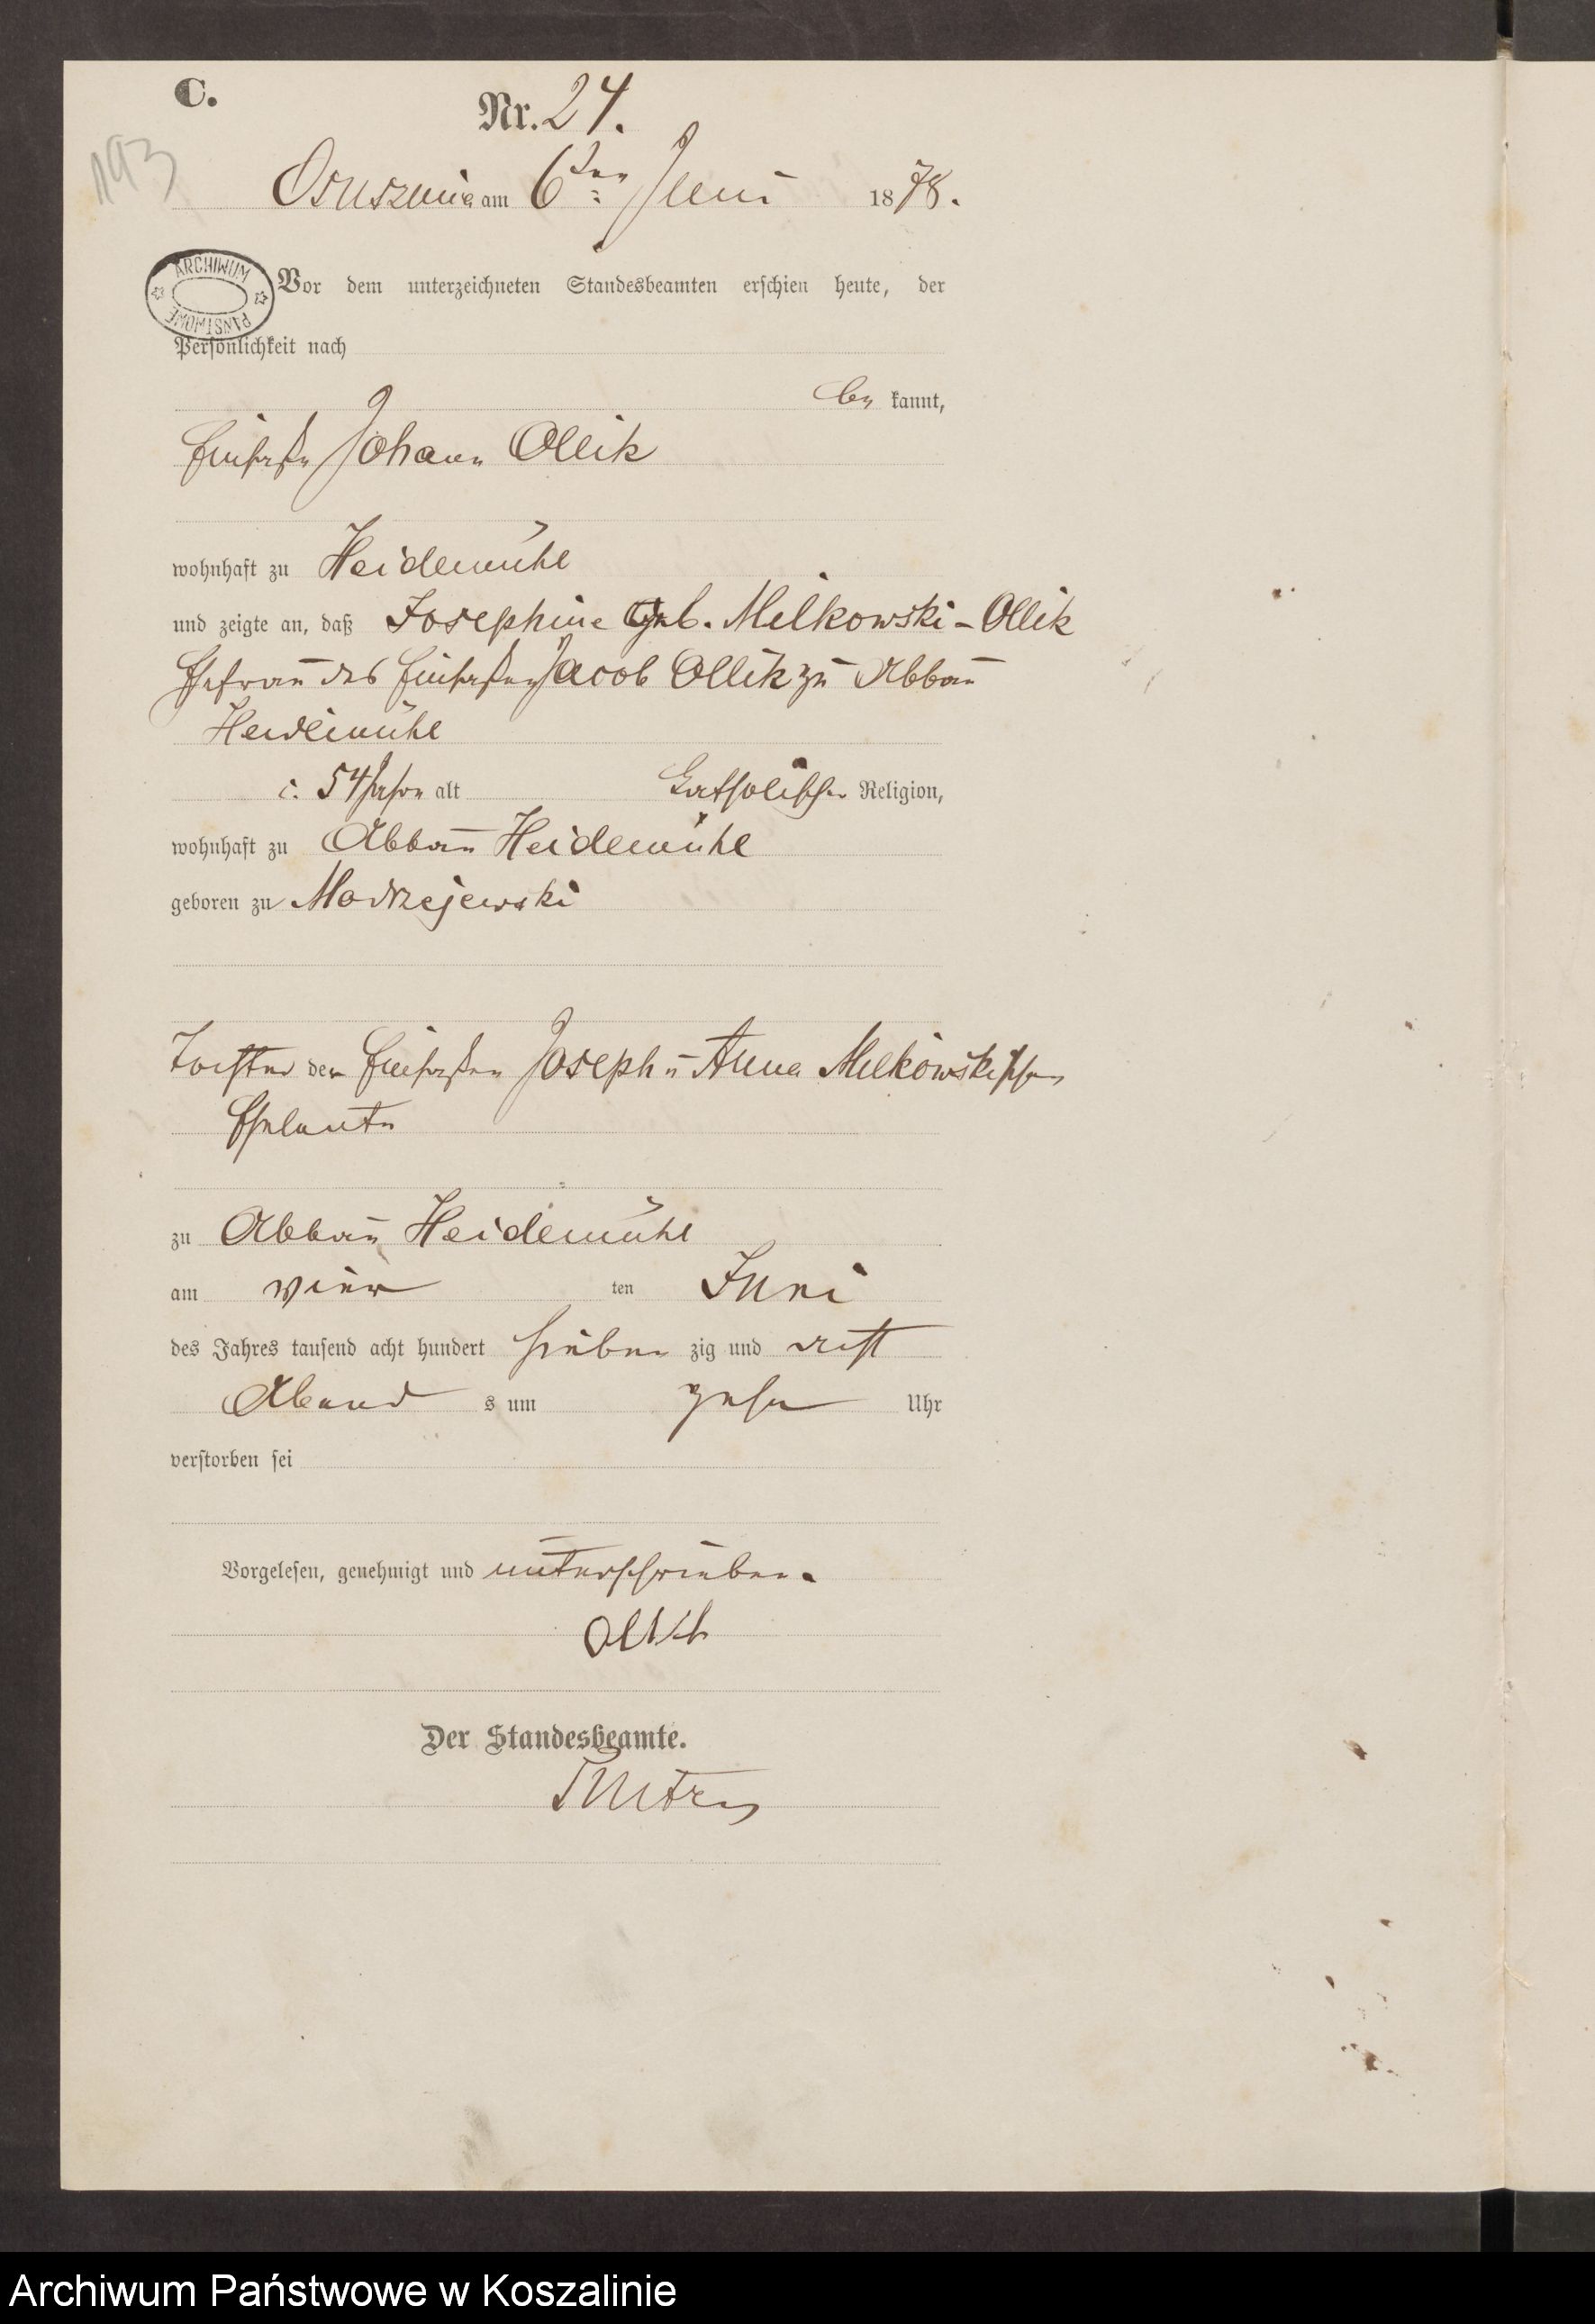 C.
Nr. 24.
193
Osusznica am 6ten Juni 1878.
ARCHIWUM PAŃSTWOWE
Vor dem unterzeichneten Standesbeamten erschien heute, der
Persönlichkeit nach
be kannt,
Einsaße Johann Ollik
wohnhaft zu Heidemühl
und zeigte an, daß Josephine Geb. Milkowski - Ollik
Ehefrau des Einsaßen Jacob Ollik zu Abbau
Heidemühl
c. 54 Jahre alt Katholischer Religion,
wohnhaft zu Abbau Heidemühl
geboren zu Modrzejewski
Tochter der Einsaßen Joseph u Anna Milkowskischen
Eheleute
zu Abbau Heidemühl
am vier ten Juni
des Jahres tausend acht hundert sieben zig und acht
Abend s um zehn Uhr
verstorben sei
Vorgelesen, genehmigt und unterschrieben.
Ollik
Der Standesbeamte.
Archiwum Państwowe w Koszalinie